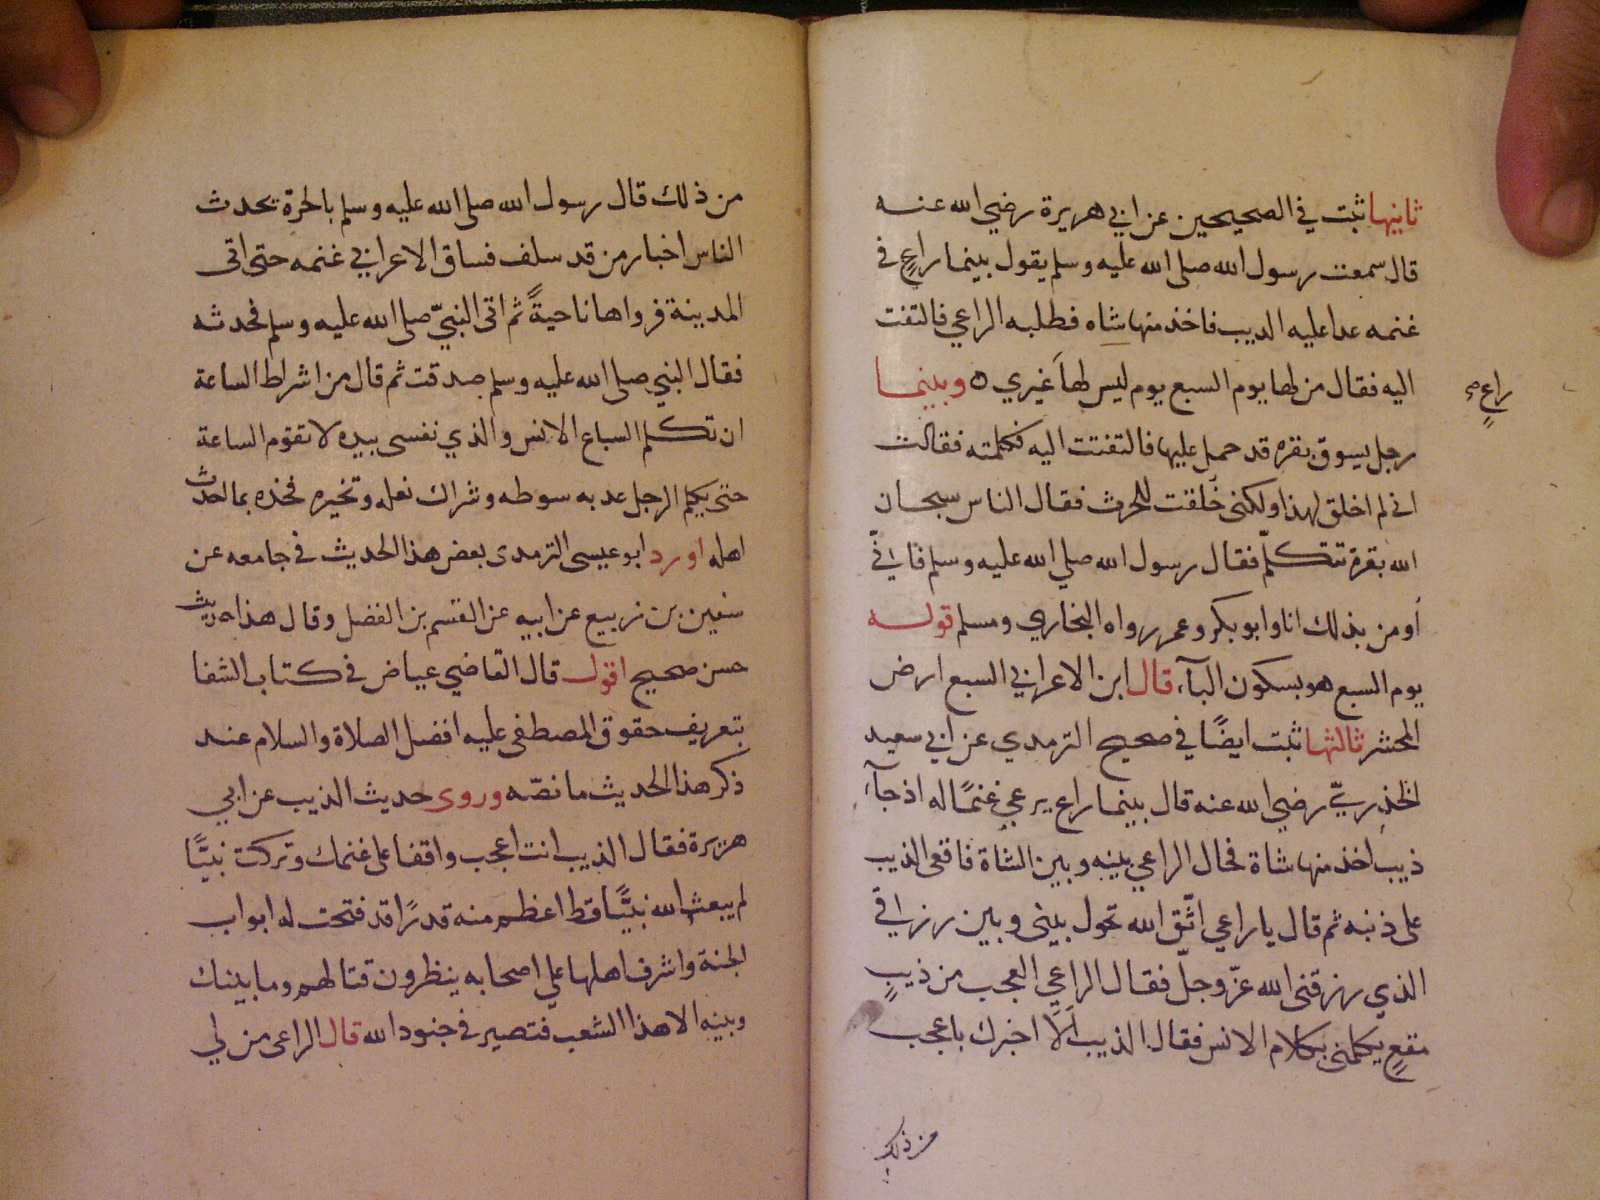 ثانيها ثبت في الصحيحين عن ابي هريرة رضي الله عنه
قال سمعت رسول الله صلى الله عليه وسلم يقول بينما راعٍ في
غنمه عدا عليه الديب فاخذ منها شاه فطلبه الراعي فالتفت
اليه فقال من لها يوم السبع يوم ليس لها غيري ٥ وبينما
راعٍ صح
رجل يسوق بقره قد حمل عليها فالتفتت اليه فكلمته فقالت
اني لم اخلق لهذا ولكني خُلقت للحرث فقال الناس سبحان
الله بقرة تتكلّم فقال رسول الله صلي الله عليه وسلم فاِنّي
أومن بذلك انا وابو بكر وعمر رواه البخاري ومسلم قوله
يوم السبع هو بسكون البآء قال ابن الاعرابي السبع ارض
المحشر ثالثها ثبت ايضًا في صحيح الترمدي عن ابي سعيد
الخذريّ رضي الله عنه قال بينما راع يرعي غنمًا له اذ جآء
ذيب اخذ منها شاة فحال الراعي بينه وبين الشاة فاقعى الذيب
على ذنبه ثم قال يا راعي اتّق الله تحول بيني وبين رزقي
الذي رزقني الله عزّ وجلّ فقال الراعي العجب من ذيبٍ
مقعٍ يكلمني بكلام الانس فقال الذيب اَلاَ اخبرك باعجب
من ذلك
من ذلك قال رسول الله صلى الله عليه وسلم بالحرة يحدث
الناس اخبار من قد سلف فساق الاعرابي غنمه حتى اتى
المدينة فرواها ناحيةً ثم اتى النبيّ صلى الله عليه وسلم فحدثه
فقال النبي صلى الله عليه وسلم صدقت ثم قال من اشراط الساعة
ان تكلم السباع الانس والذي نفسى بيده لا تقوم الساعة
حتى يكلم الرجل عدبه سوطه وشراك نعله وتخبره فخذه بما احدث
اهله اورد ابو عيسى الترمدى بعض هذا الحديث في جامعه عن
سفين بن ربيع عن ابيه عن القسم بن الفضل وقال هذا حديث
حسن صحيح اقول قال القاضي عياض في كتاب الشفا
بتعريف حقوق المصطفى عليه افضل الصلاة والسلام عند
ذكر هذا الحديث ما نصّه وروى حديث الذيب عن ابي
هريرة فقال الذيب انت اعجب واقفا على غنمك وتركت نبيًّا
لم يبعث الله نبيًّا قط اعظم منه قدرًا قد فتحت له ابواب
الجنة واشرف اهلها علي اصحابه ينظرون قتالهم وما بينك
وبينه الا هذا الشعب فتصير في جنود الله قال الراعى من لي